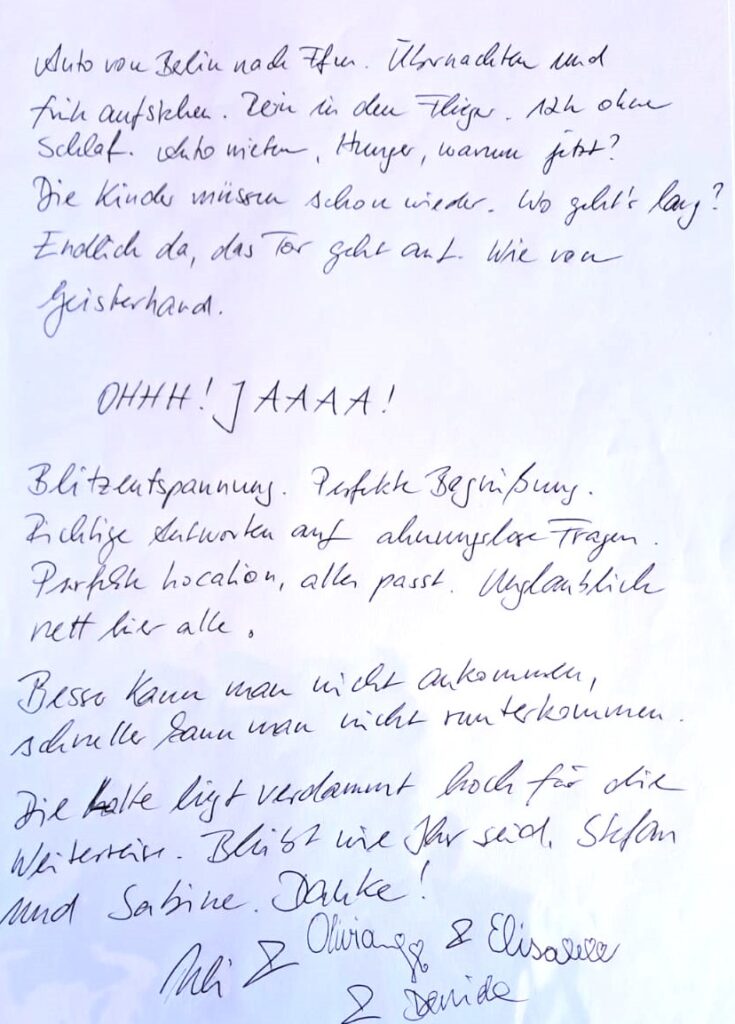 Auto von Berlin nach Ffm. Übernachten und
früh aufstehen. Rein in den Flieger. 12h ohne
Schlaf. Auto mieten, Hunger, warum jetzt?
Die Kinder müssen schon wieder. Wo geht's lang?
Endlich da, das Tor geht auf. Wie von
Geisterhand.
OHHH! JAAAA!
Blitzentspannung. Perfekte Begrüßung.
Richtige Antworten auf ahnungslose Fragen.
Perfekte Location, alles passt. Unglaublich
nett hier alle.
Besser kann man nicht ankommen,
schneller kann man nicht runterkommen.
Die Latte liegt verdammt hoch für die
Weiterreise. Bleibt wie Ihr seid, Stefan
und Sabine. Danke!
& Olivia & Elisabeth
&